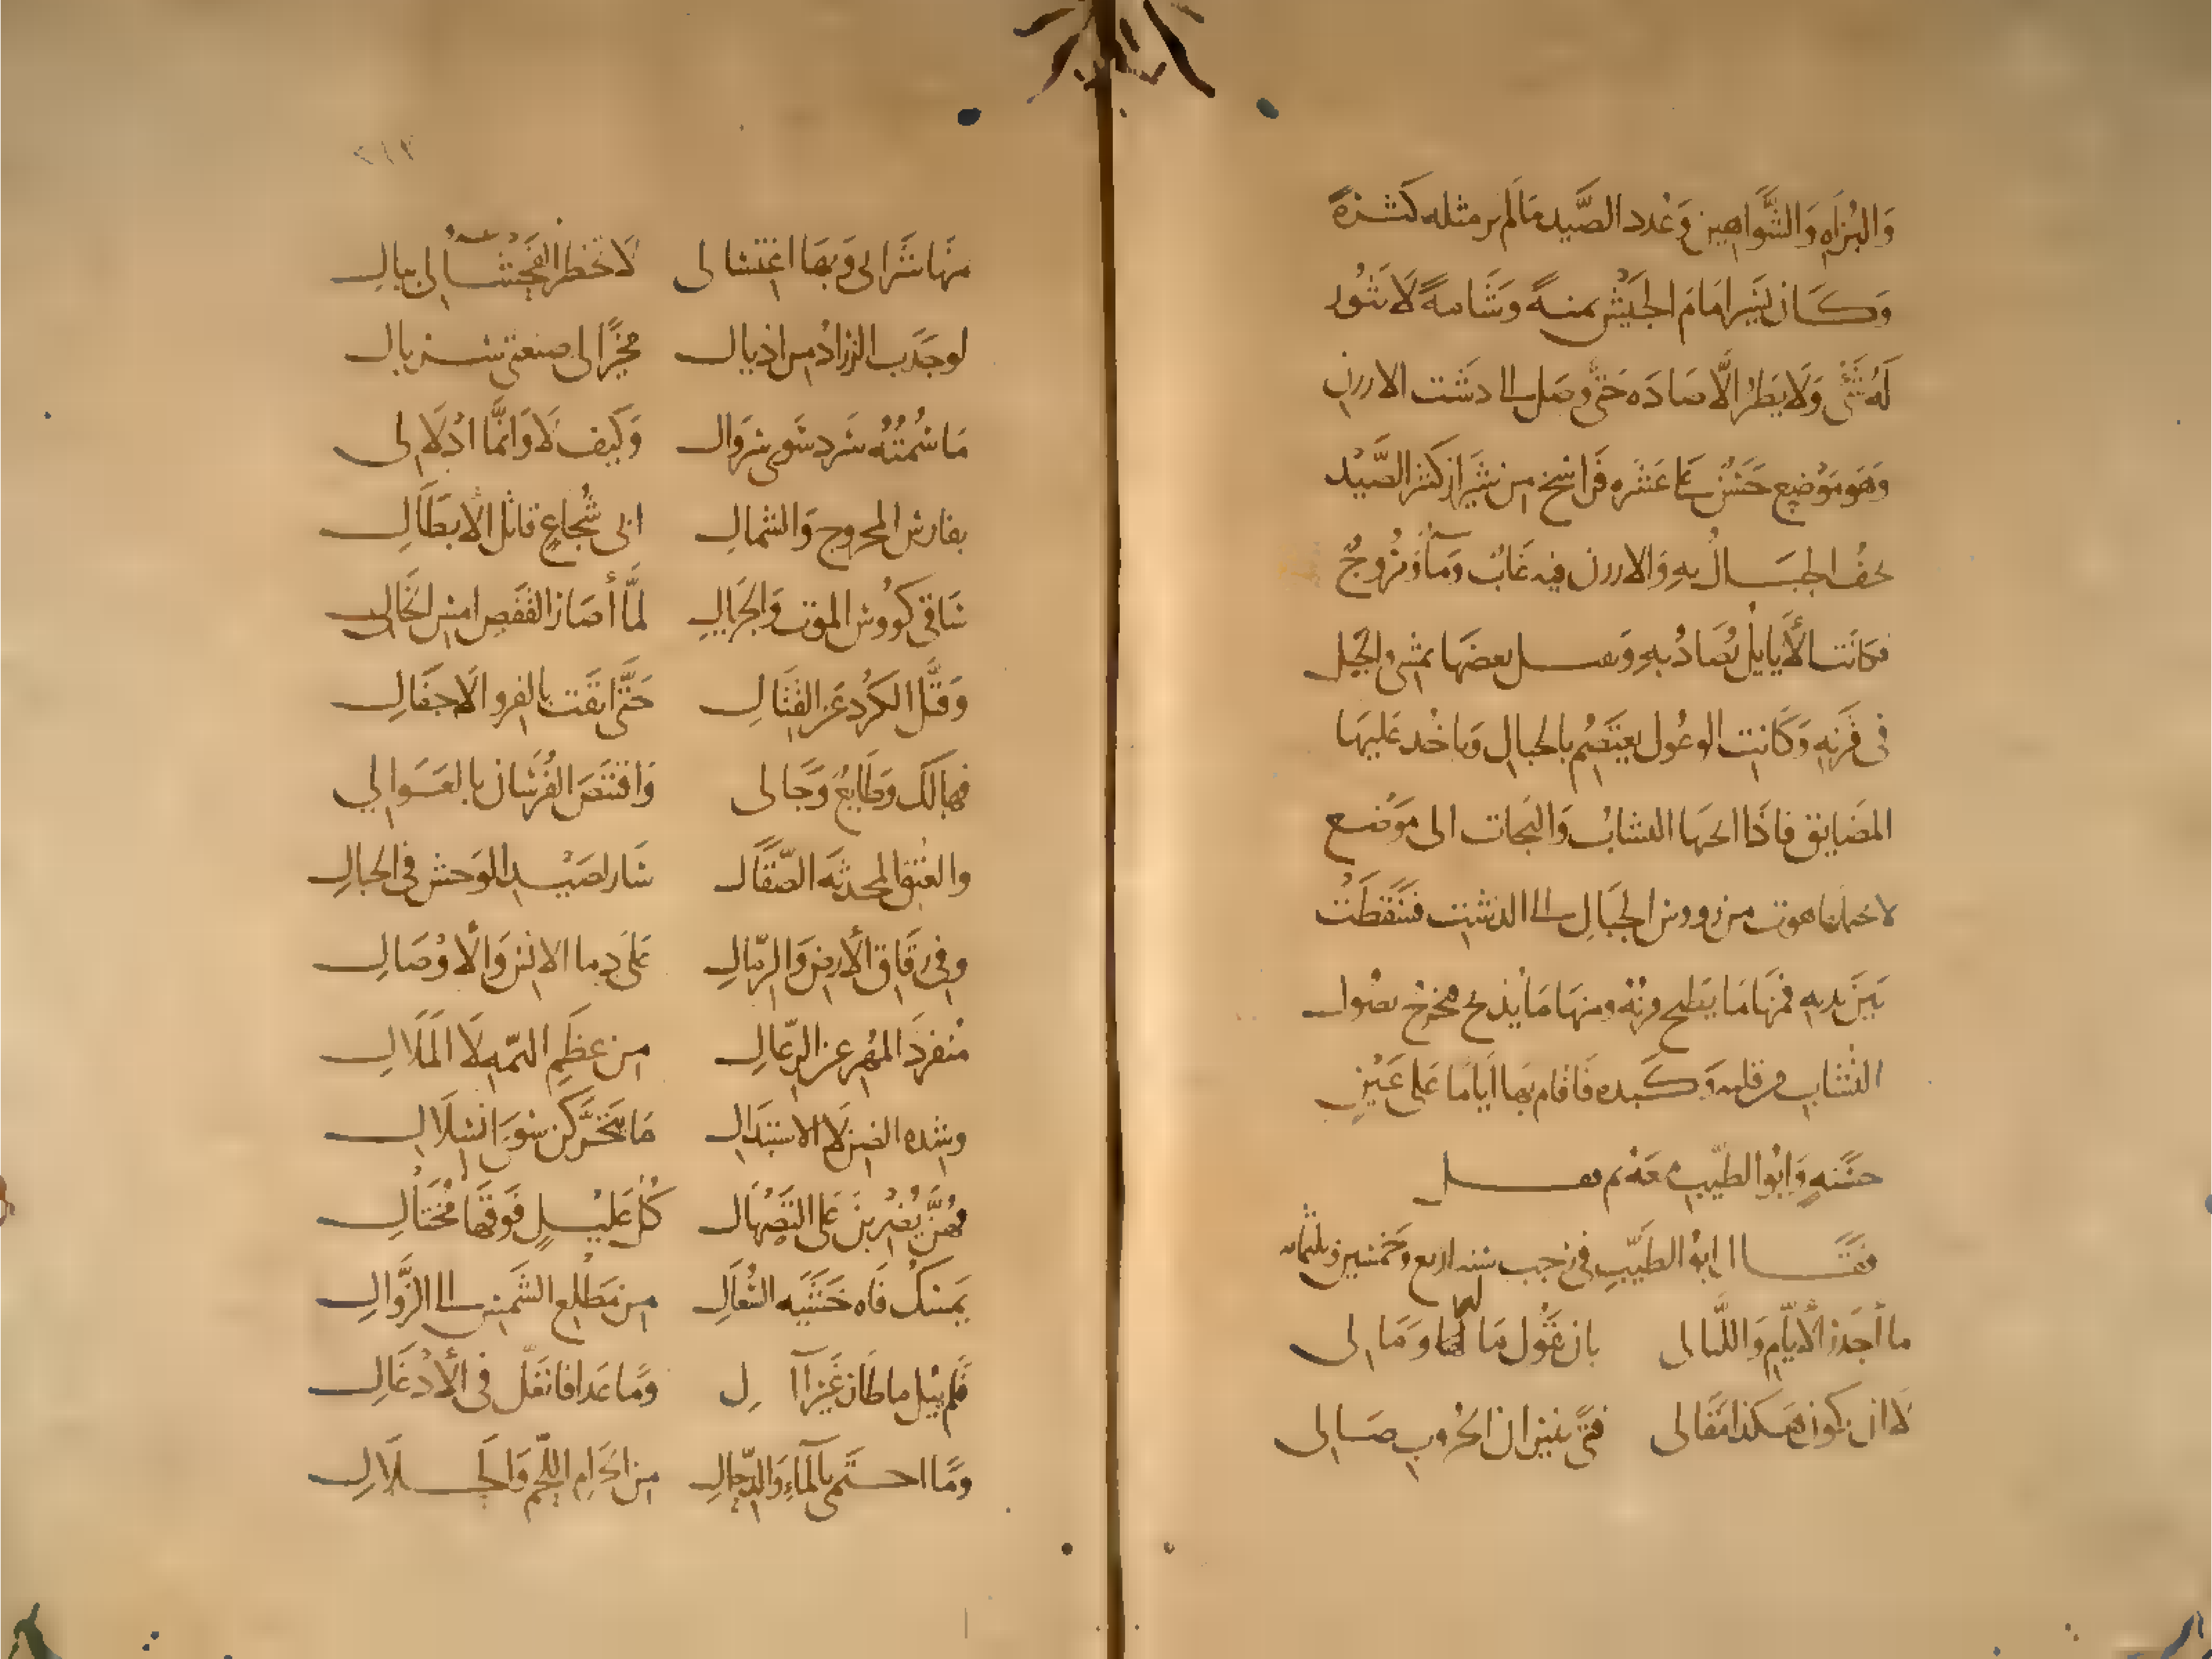 وَالبُزَاه وَالشَّوَاهين وَعُدد الصَّيد مَا لم ير مثله كَثرةً
وَكَان يَسِير امَامَ الجَيْش يمنةً وَشَامةً لَا يَثُور
لَهُ شَئ وَلَا يَطرُ الَّا صَادَه حَتّى وصَل الى دَشت الاررن
وَهَو مَوْضِع حَسَن على عَشره فَرَاسخ من شيَراز كثير الصَّيْد
تحفُ الجبَالُ به وَالاررن فيه غَابٌ وَمَآءٌ وَمُرُوجٌ
فكَانَت الأَيايل تُصَادُ به وَيقبل بعضهَا يمشى والحَبل
فى قَرنه وَكَانِت الوعُول يعتَصِم بالجبال وَياخُد عَليهَا
المضَايق فاذَا اثخنها النشابُ وَالتجات الى مَوَضع
لا تحملها هوت من رووس الجبَال الى الدشت فسَقَطَتْ
بَين يديه فمنهَا مَا يَطيح قرنُهُ ومنهَا مَا يُذبح فيُخرج نصُول
النُشاب من قلبه وَكَبده فَاقام بهَا ايَامَا عَلى عَيْنٍ
حسَنَهٍ وَابُو الطيّب مَعَهُ ثم قفل
فقَال ابوُ الطَيّب فى رَجب سنه اربع وَخمسين وثلثمائه
ما أَجدَر الأيّام وَاللّيالى بان تَقُول مَا لهُ وَمَا لى
لَا ان يكُون هَكذا مَقَالى فتىً بنيران الحُروب صَالى
منهَا شَرابى وَبهَا اغتسالى لَا تَخطر الفَحشآءُ لى ببالِ
لو جَذَب الزرّادُ من اذيال مخيّرًا لى صنعتى سربال
مَا سُمْتُهُ سَرد سَوى سَروَال وَكَيف لَا وَانَّما ادْلَالى
بفارس المحروج وَالشمالِ ابى شُجاعٍ قاتل الأبطَالِ
سَاقى كؤُوس الموت وَالجريالِ لمَّا أصَار القُفصِ امس الخَالى
وَقتَّل الكُرد عَن القتَالِ حَتَّى اتقَت بالفر والاجفَالِ
فهَالكٌ وَطَايعٌ وَجَالى وَاقتنَصَ الفُرسَان بالعَوَالى
والعُتق المُحدثَه الصّقَال سَار لصَيد الوَحش فى الجبالِ
وفى رَقَاق الأرض وَالرّمَالِ عَلى دما الانْس وَالأوْصَالِ
مُنفردَ المُهر عن الرّعَالِ من عظَم الهمّه لَا المَلَالِ
وشِده الضن لا الاستبدَالِ مَا يتحَرَّكن سوَى انْسلَالِ
فهُنَّ يُضرَبنَ عَلى التَصْهَالِ كُلُ عَليلٍ فَوقَهَا مُختَالِ
يمسكُ فَاه خشيَه السُعَالِ من مَطْلع الشمس الى الزَوَالِ
فلم يئِل ما طَار غَير آ لِ وَمَا عَدا فانغَلّ فى الأدْغَالِ
وَمَا احتَمى بالمَآءِ وَالدّحَالِ من الحَرامِ اللحم وَالحَلَالِ